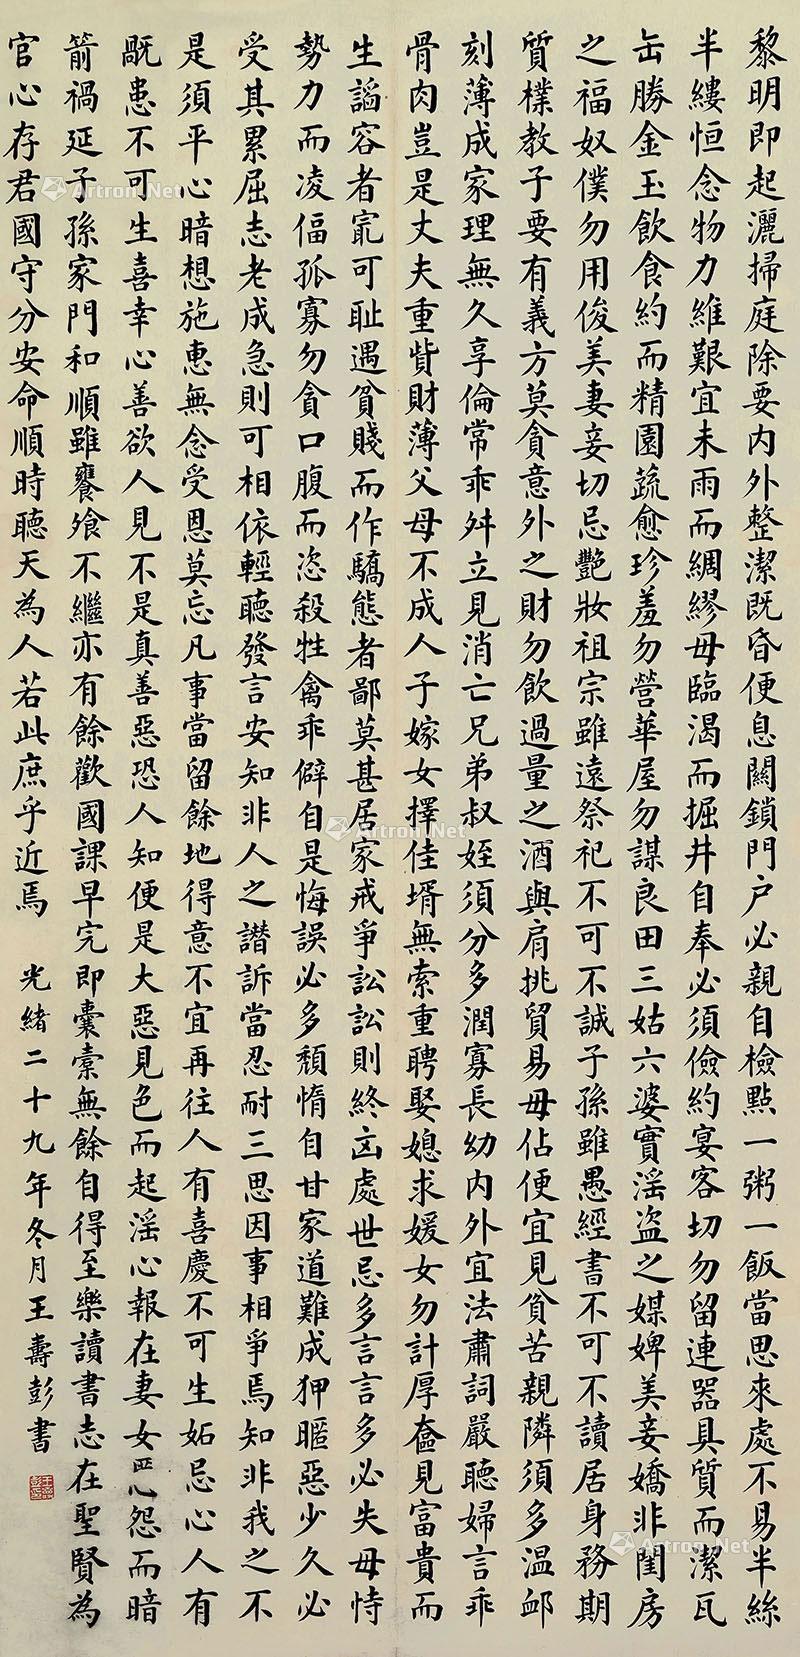 黎明即起灑掃庭除要內外整潔既昏便息關鎖門户必親自檢點一粥一飯當思來處不易半絲
半縷恒念物力維艱宜未雨而綢繆毋臨渴而掘井自奉必須儉約宴客切勿留連器具質而潔瓦
缶勝金玉飲食約而精園蔬愈珍羞勿營華屋勿謀良田三姑六婆實淫盜之媒婢美妾嬌非閨房
之福奴僕勿用俊美妻妾切忌艷妝祖宗雖遠祭祀不可不誠子孫雖愚經書不可不讀居身務期
質樸教子要有義方莫貪意外之財勿飲過量之酒與肩挑貿易毋佔便宜見貧苦親隣須多溫卹
刻薄成家理無久享倫常乖舛立見消亡兄弟叔姪須分多潤寡長幼內外宜法肅詞嚴聽婦言乖
骨肉豈是丈夫重貲財薄父母不成人子嫁女擇佳壻無索重聘娶媳求媛女勿計厚奩見富貴而
生謟容者最可耻遇貧賤而作驕態者鄙莫甚居家戒爭訟訟則終凶處世忌多言言多必失毋恃
勢力而凌偪孤寡勿貪口腹而恣殺牲禽乖僻自是悔誤必多頹惰自甘家道難成狎暱惡少久必
受其累屈志老成急則可相依輕聽發言安知非人之譖訴當忍耐三思因事相爭焉知非我之不
是須平心暗想施惠無念受恩莫忘凡事當留餘地得意不宜再往人有喜慶不可生妬忌心人有
禍患不可生喜幸心善欲人見不是真善惡恐人知便是大惡見色而起淫心報在妻女匿怨而暗
箭禍延子孫家門和順雖饔飧不繼亦有餘歡國課早完即囊橐無餘自得至樂讀書志在聖賢為
官心存君國守分安命順時聽天為人若此庶乎近焉 光緒二十九年冬月王壽彭書
Artron.Net
Artron.Net
Artron.Net